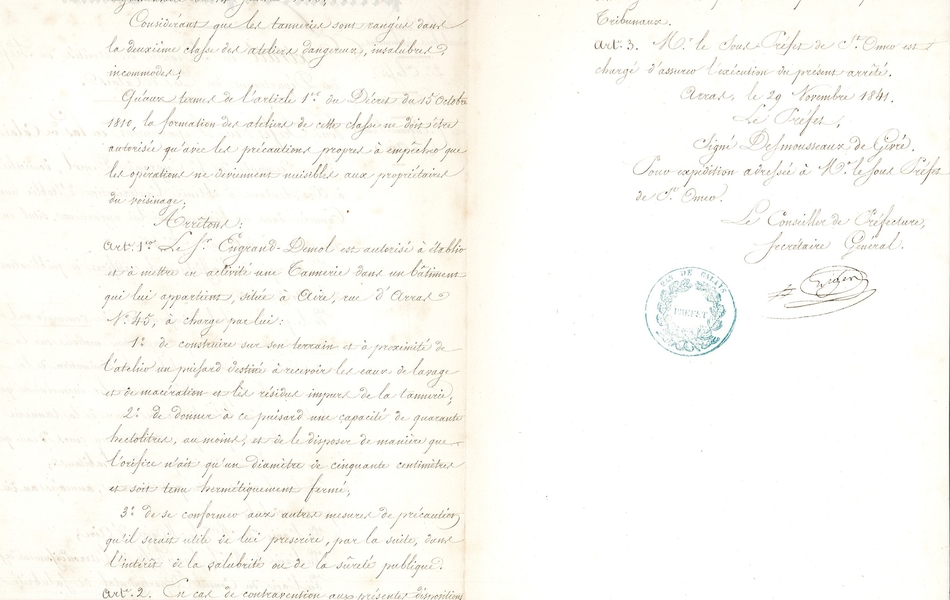 Considérant que les tanneries sont rangées dans
la deuxième classe des ateliers dangereux, insalubres &
incommodes;
Qu'aux termes de l'article 1er du Décret du 15 Octobre
1810, la formation des ateliers de cette classe ne doit être
autorisée qu'avec les précautions propres à empêcher que
les opérations ne deviennent nuisibles aux propriétaires
du voisinage;
Arrêtons:
Art. 1er Le Sr. Engrand-Demol est autorisé à établir
et à mettre en activité une Tannerie dans un bâtiment
qui lui appartient, situé à Aire, rue d'Arras
No. 45, à charge par lui:
1o. de construire sur son terrain et à proximité de
l'atelier un puisard destiné à recevoir les eaux de lavage
et de macération et les résidus impurs de la tannerie;
2o. de donner à ce puisard une capacité de quarante
hectolitres, au moins, et de le disposer de manière que
l'orifice n'ait qu'un diamètre de cinquante centimètres
et soit tenu hermétiquement fermé;
3o. de se conformer aux autres mesures de précaution
qu'il serait utile de lui prescrire, par la suite, dans
l'intérêt de la salubrité ou de la sûreté publique.
Art. 2. En cas de contravention aux présentes dispositions
Tribunaux.
Art. 3. Mr. le Sous Préfet de St. Omer est
chargé d'assurer l'exécution du présent arrêté.
Arras, le 29 Novembre 1841.
Le Préfet,
Signé Desmousseaux de Givré.
Pour expédition adressée à Mr. le Sous Préfet
de St. Omer.
Le Conseiller de Préfecture,
Secrétaire Général.
PAS DE CALAIS